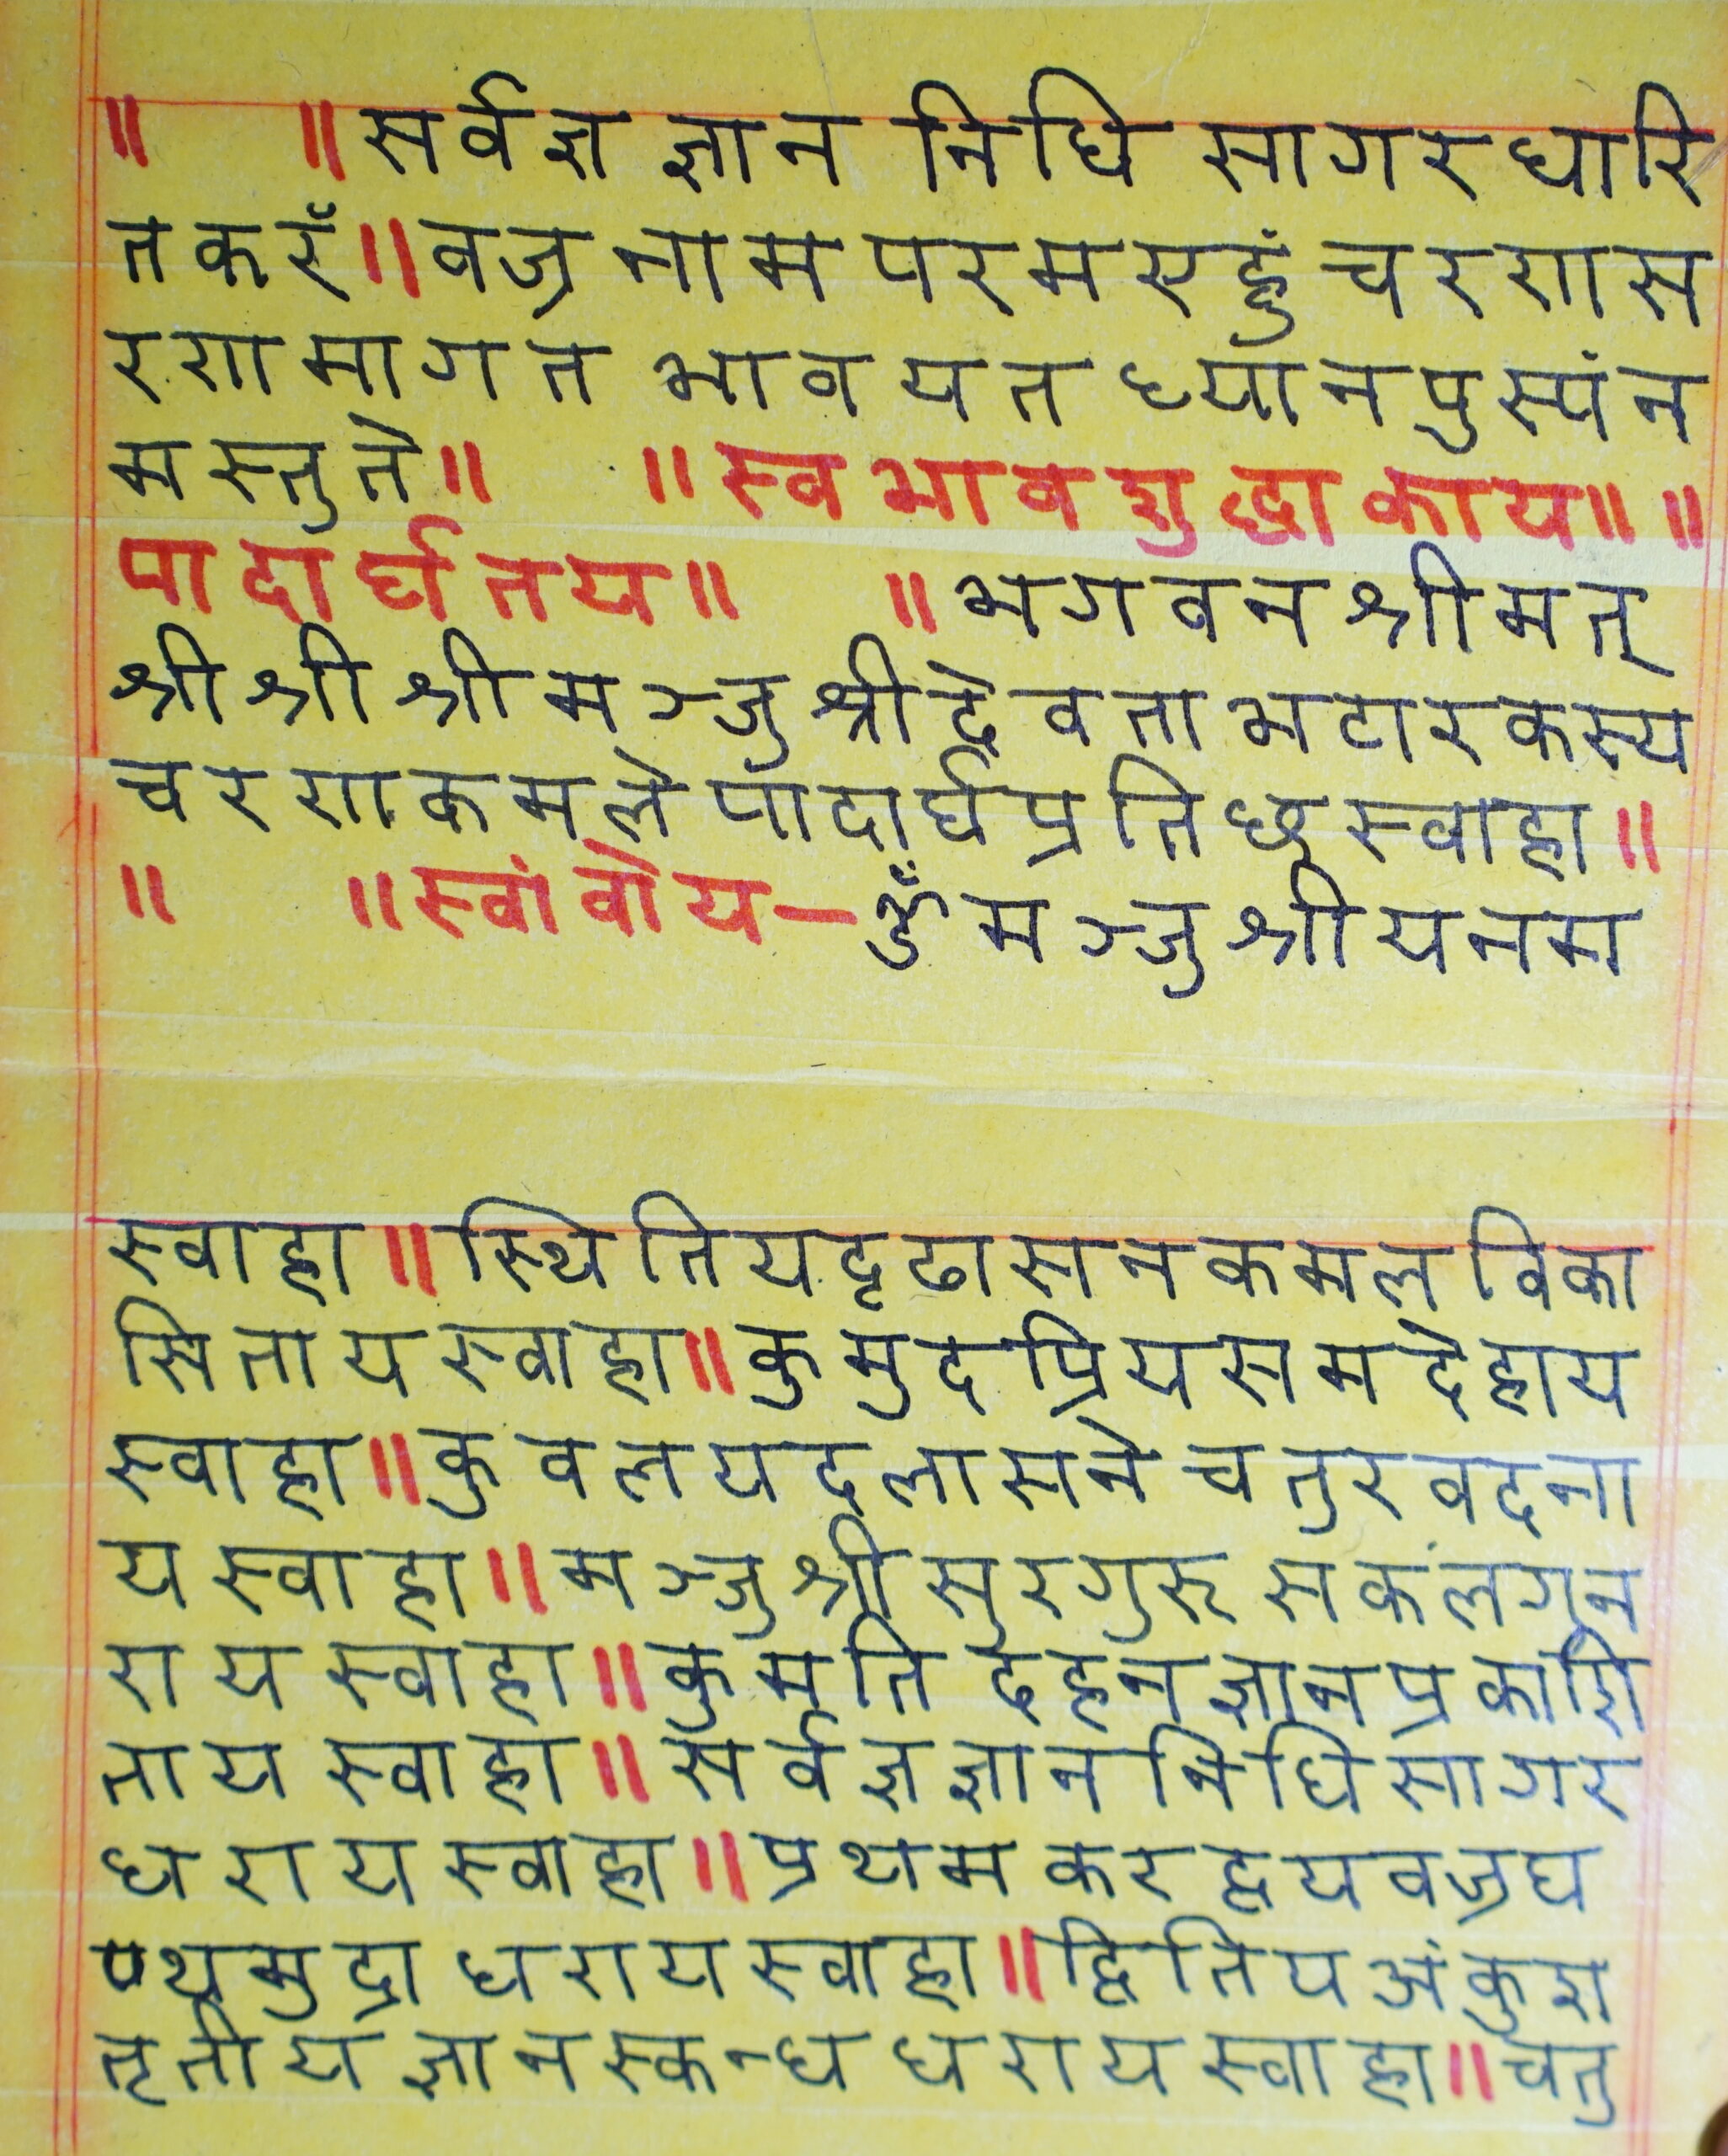 ॥ ॥ सर्वज्ञ ज्ञान निधि सागर धारि
त करँ ॥ वज्र नाम परम एहुं चरणस
रणमागत भावयत ध्यानपुस्पंन
मस्तुते ॥ ॥ स्वभाव शुद्धा काय ॥ ॥
पादार्घ तय ॥ ॥ भगवन श्रीमत्
श्री श्री श्री मञ्जुश्री देवता भटारकस्य
चरणकमले पादार्घ प्रतिछ स्वाहा ॥
॥ ॥ स्वांवोय — ॐ मञ्जुश्रीय नम
स्वाहा ॥ स्थितिय दृढासन कमल विका
सिताय स्वाहा ॥ कुमुद प्रिय सम देहाय
स्वाहा ॥ कुवलय दलासने चतुर वदना
य स्वाहा ॥ मञ्जुश्री सुरगुरु सकलगुन
राय स्वाहा ॥ कुमति देहन ज्ञान प्रकाशि
ताय स्वाहा ॥ सर्वज्ञ ज्ञान निधि सागर
धराय स्वाहा ॥ प्रथम कर द्वय वज्रघ
ण्थमुद्रा धराय स्वाहा ॥ द्वितिय अंकुश
तृतीय ज्ञान स्कन्ध धराय स्वाहा ॥ चतु